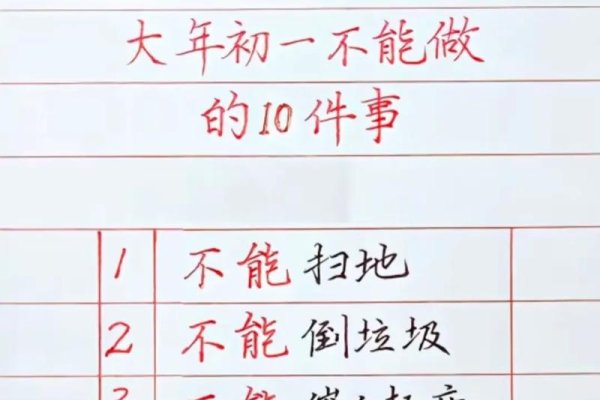 大年初一不能做
的10件事
1 不能扫地
2 不能倒垃圾
3 不能